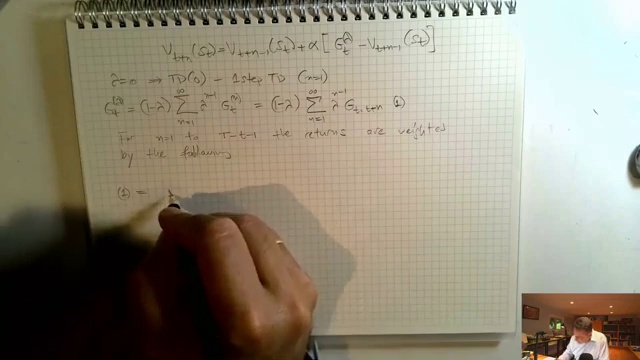 V_{t+n}(S_t) = V_{t+n-1}(S_t) + α [ G_t^{(λ)} - V_{t+n-1}(S_t) ]
λ=0 ⟹ TD(0) - 1 step TD (n=1)
G_t^{(λ)} = (1-λ) ∑_{n=1}^{∞} λ^{n-1} G_t^{(n)} = (1-λ) ∑_{n=1}^{∞} λ^{n-1} G_{t,t+n} (1)
For n=1 to T-t-1 the returns are weighted
by the following
(1) =